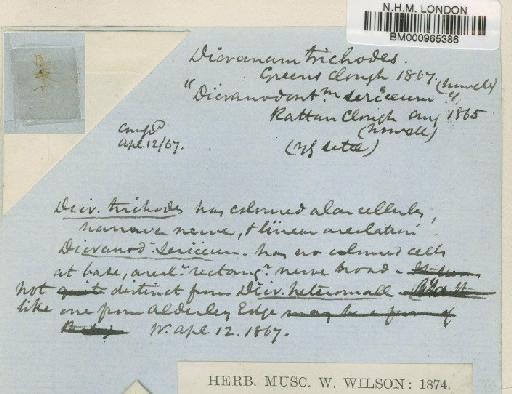 N.H.M. LONDON
BM000965386
Dicranum trichodes.
Greens Clough 1867. (Nowell)
"Dicranodontm sericeum"
Rattan Clough aug 1865
(Nowell)
compd
Apl 12/67.
(yg setæ)
Dicr. trichodes has coloured alar cellules,
narrow nerve, & linear areolation
Dicranod. sericeum. has no coloured cells
at base, areoln rectangr nerve broad
not distinct from Dicr. heteromall
like one from Alderley Edge may be a form of
W. Apl 12. 1867.
HERB. MUSC. W. WILSON: 1874.